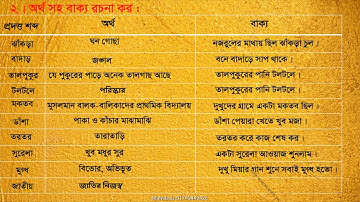 ২ । অর্থ সহ বাক্য রচনা কর :
প্রদত্ত শব্দ অর্থ বাক্য
ঝাঁকড়া ঘন গোছা নজরুলের মাথায় ছিল ঝাঁকড়া চুল ।
বাদাড় জঙ্গল বনে বাদাড়ে সাপ থাকে ।
তালপুকুর যে পুকুরের পাড়ে অনেক তালগাছ আছে তালপুকুরের পানি টলটলে ।
টলটলে পরিষ্কার তালপুকুরের পানি টলটলে ।
মকতব মুসলমান বালক-বালিকাদের প্রাথমিক বিদ্যালয় দুখুদের গ্রামে একটা মকতব ছিল ।
ডাঁশা পাকা ও কাঁচার মাঝামাঝি ডাঁশা পেয়ারা খেতে খুব মজা ।
তরতর তারাতাড়ি তরতর করে কাজ শেষ কর ।
সুরেলা খুব মধুর সুর একটা সুরেলা আওয়াজ শুনলাম ।
মুগ্ধ বিভোর, অভিভূত দুখু মিয়ার গান শুনে সবাই মুগ্ধ হতো ।
জাতীয় জাতির নিজস্ব